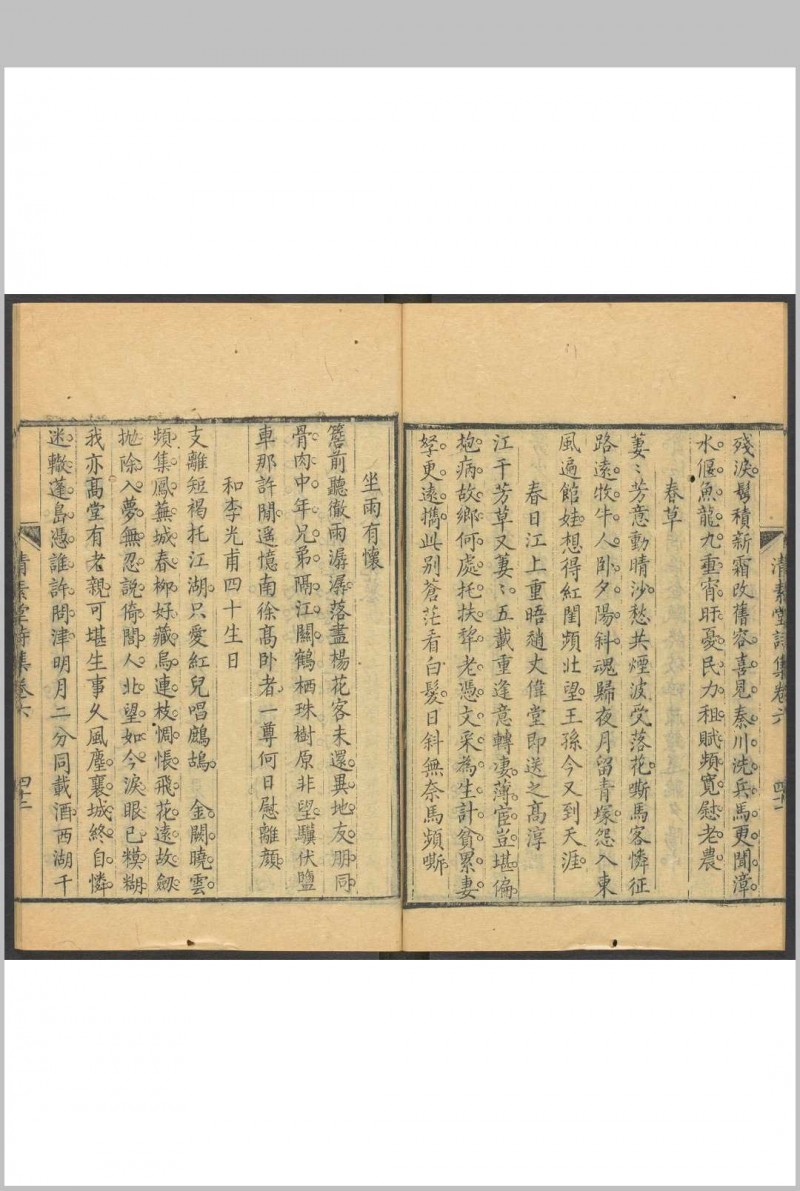 殘淚鬢積新霜改舊容喜見秦川洗兵馬更聞漳
水偃魚龍九重宵旰憂民力租賦頻寬慰老農
春草
萋〻芳意動晴沙愁共煙波受落花嘶馬客憐征
路遠牧牛人卧夕陽斜魂歸夜月留青塚怨入東
風遍館娃想得紅閨頻北望王孫今又到天涯
春日江上重晤趙丈偉堂即送之高淳
江干芳草又萋〻五載重逢意轉凄薄宦豈堪偏
抱病故鄉何處托扶犂老憑文采為生計貧累妻
孥更遠擕此别蒼茫看白髮日斜無奈馬頻嘶
清素堂詩集卷六
四十一
坐雨有懷
簷前聽徹雨潺潺落盡楊花客未還異地友朋同
骨肉中年兄弟隔江關鶴栖珠樹原非望驥伏鹽
車那許閒遥憶南徐高卧者一尊何日慰離顏
和李光甫四十生日
支離短褐托江湖只愛紅兒唱鷓鴣 金闕曉雲
頻集鳳蕪城春柳好藏烏連枝惆悵飛花遠故劔
抛除入夢無忍說倚閭人北望如今淚眼已模糊
我亦高堂有老親可堪生事久風塵襄城終自憐
迷轍蓬島憑誰許問津明月二分同載酒西湖千
清素堂詩集卷六
四十二